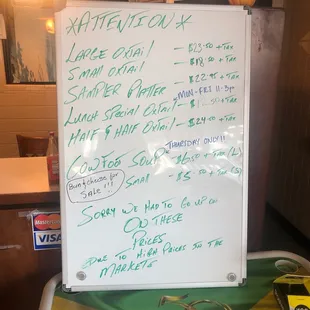 *ATTENTION*
LARGE OXTAIL - $23.50 + TAX
SMALL OXTAIL - $18.50 + TAX
SAMPLER PLATTER - $22.95 + TAX
MON-FRI 11-3pm
LUNCH SPECIAL OXTAIL - + TAX
HALF & HALF OXTAIL - $24.00 + TAX
THURSDAY ONLY!!
COWFOOT SOUP + TAX (L)
SMALL - + TAX (S)
Bun & cheese for
SALE!!!
SORRY WE HAD TO GO UP ON
ON THESE
PRICES
DUE TO HIGH PRICES IN THE
MARKETS
MasterCard
VISA